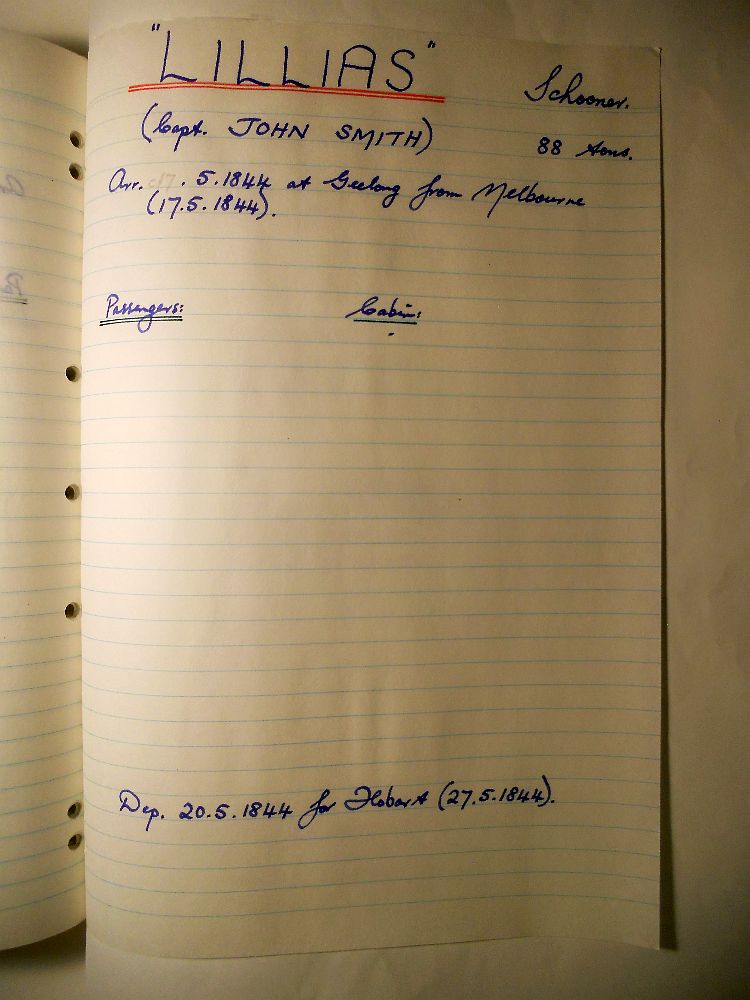 "LILLIAS"
Schooner.
(Capt. JOHN SMITH)
88 tons.
Arr. . 5.1844 at Geelong from Melbourne
(17.5.1844).
Passengers:
Cabin:
Dep. 20.5.1844 for Hobart (27.5.1844).